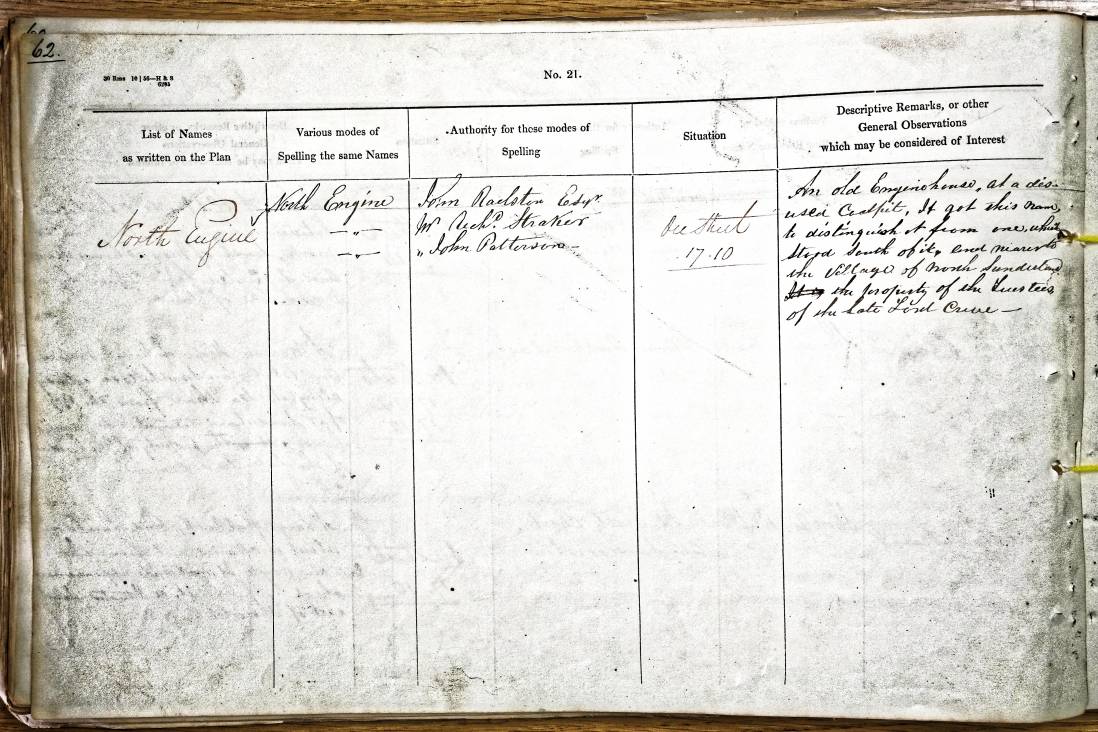 62.
No. 21.
List of Names
as written on the Plan
Various modes of
Spelling the same Names
Authority for these modes of
Spelling
Situation
Descriptive Remarks, or other
General Observations
which may be considered of Interest
North Engine
North Engine
—"—
—"—
John Railston Esqr.
Mr Richd. Straker
" John Patterson —
See Sheet
17.10
An old Enginehouse, at a dis-
used Coalpit, It got this name
to distinguish it from one, which
stood South of it, and nearer to
the Village of North Sunderland
It is the property of the Trustees
of the late Lord Crewe —